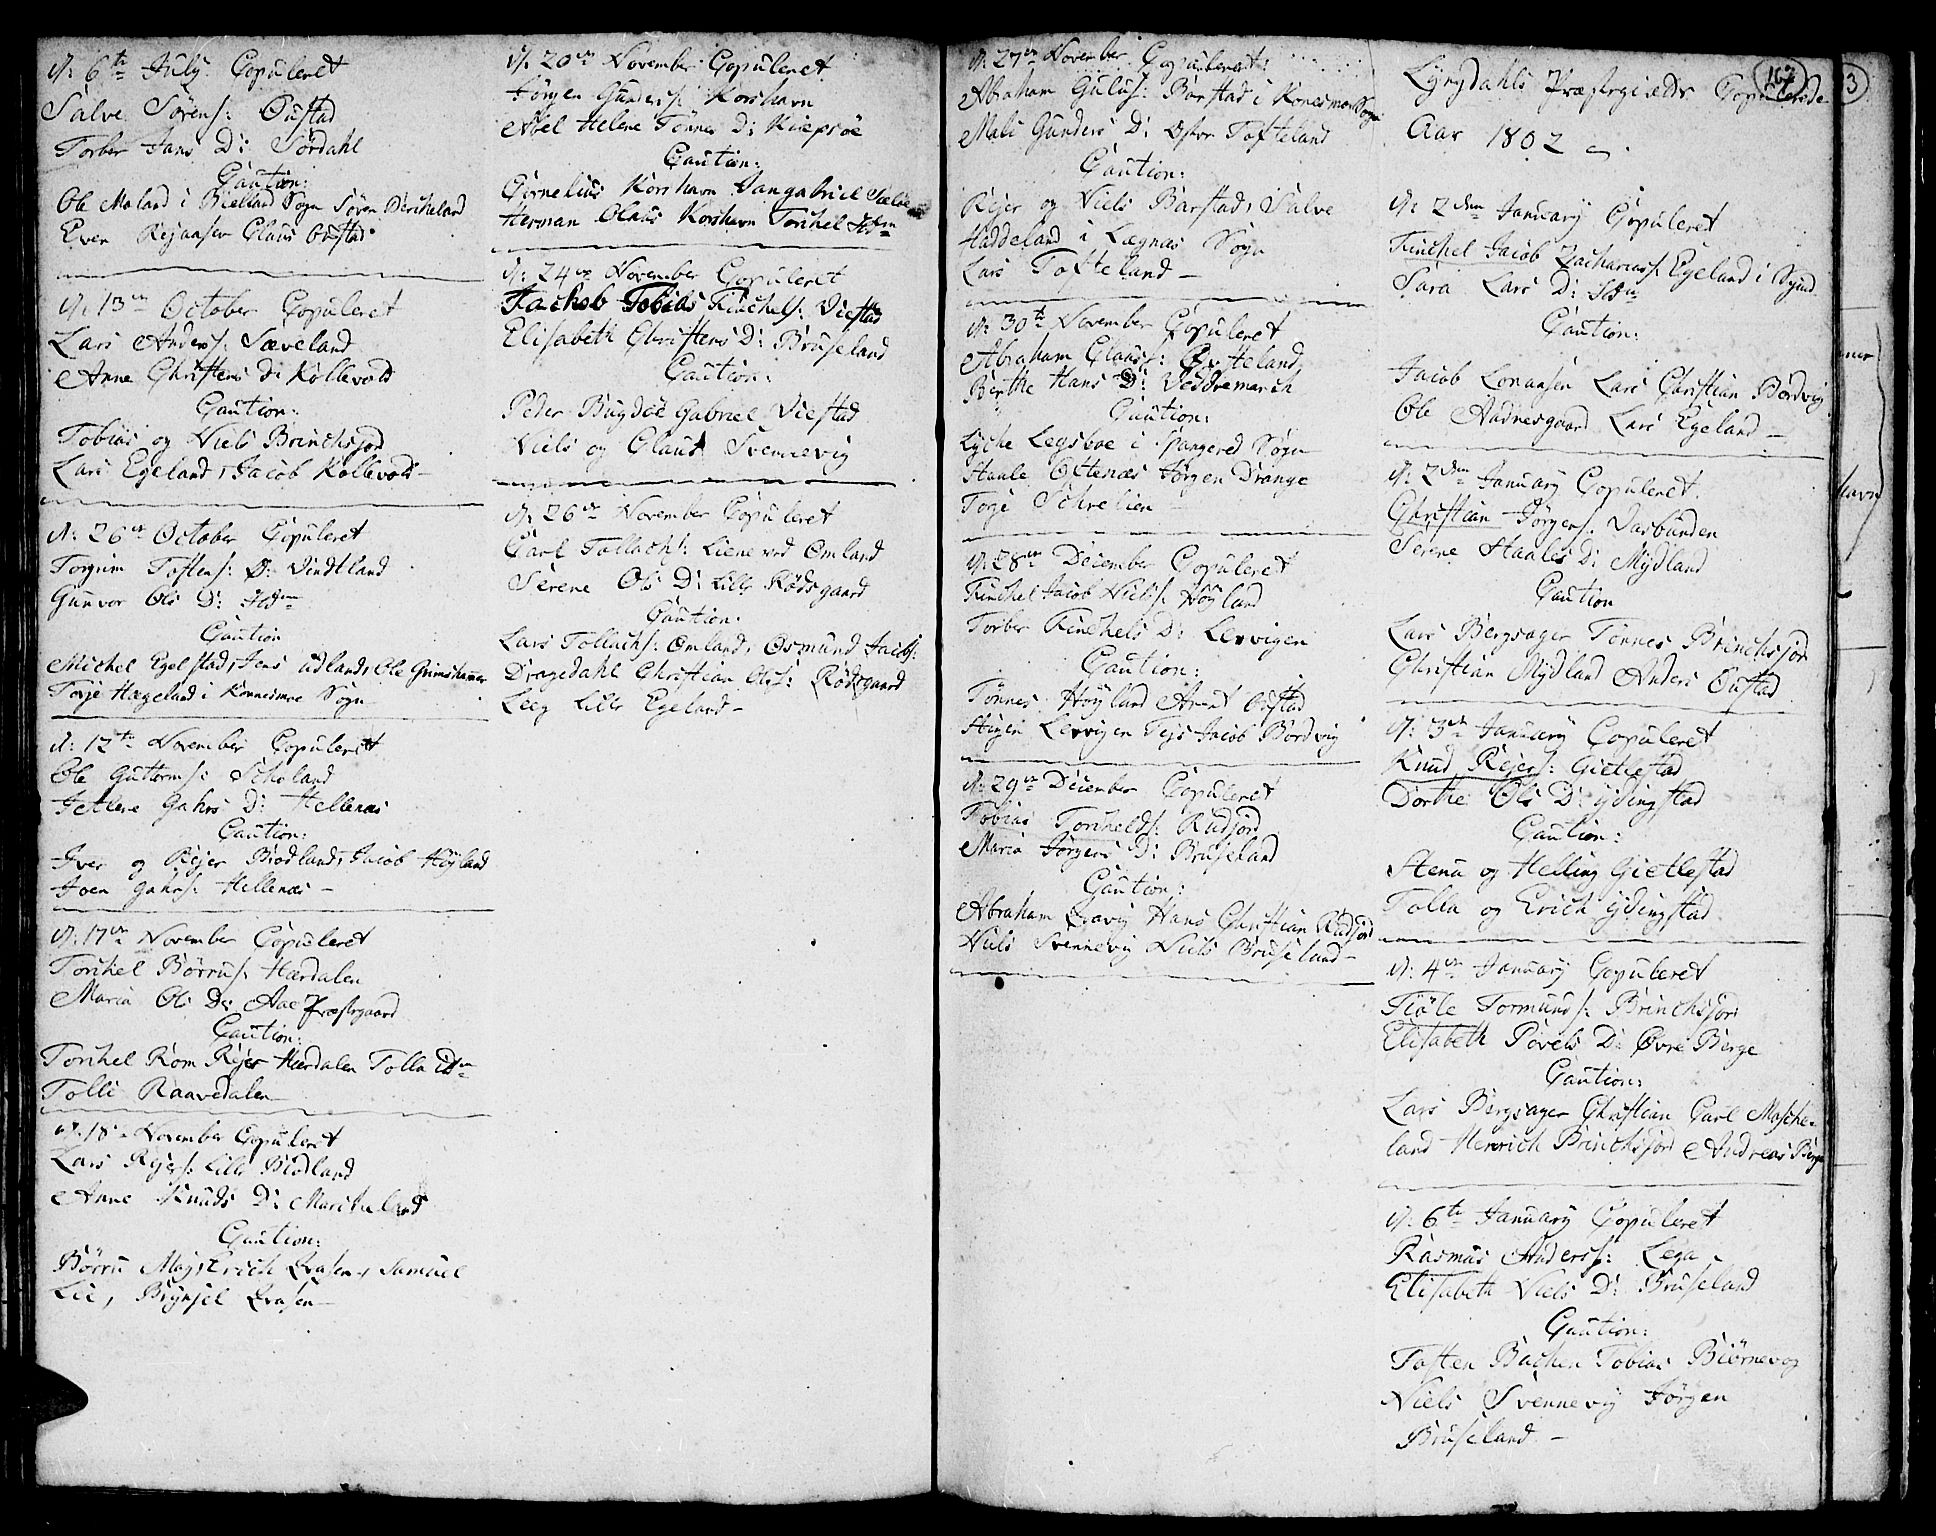 d: 6te July Copuleret
Salve Sørens: Oustad
Torber Jans D: Sordahl
Caution:
Ole Moland i Bielland Sogn Søren Dircheland
Even Rejaasen Claus Oustad
d: 13de October Copuleret
Lars Anders: Sæveland
Anne Christens D: Kollevold
Caution:
Tobias og Niels Brinchsjor
Lars Egeland, Jacob Kollevold
d: 26de October Copuleret
Torgrim Toftens: Ø: Vindtland
Gunvor Ols D: Jdm
Caution
Michel Egelstad, Jens udland, Ole Grimshammer
Torje Hægeland i Konnesmoe Sogn
d: 12te November Copuleret
Ole Guttorms: Scholand
Jetlene Gahrs D: Hellenæs
Caution:
Iver og Rejer Biodland, Jacob Høyland
Joen Gahrs: Hellenæs
d: 17de November Copuleret
Torchel Børrus: Hærdalen
Maria Ols D: Aae Præstegaard
Caution:
Torchel Rom Rejer Hærdalen Tolla idm
Tolli Raavedalen
d: 18de November Copuleret
Lars Rejers: Lille Biodland
Anne Knuds D: Marcheland
Caution:
Børru Moj, Erich Qvasen, Samuel
Lie, Brynjel Qvasen
d: 20de November Copuleret
Jørgen Gunders: Korshavn
Abel Helene Tønnes D: Kirepsøe
Caution:
Cornelius Korshavn Jangabriel Sælør
Herman Olaus Korshavn Torchel Jdm
d: 24de November Copuleret
Jachob Tobias Tinchels: Viestad
Elisabeth Christens D: Bruseland
Caution:
Peder Bugdøe Gabriel Viestad
Niels og Claus Svennevig
d: 26de November Copuleret
Carl Tollachs: Liene ved Omland
Serene Ols D: Lille Rødsgaard
Caution:
Lars Tollachs: Omland, Osmund Jacobs:
Dragedahl Christian Ols: Rødsgaard
Leeg Lille Egeland
d: 27de November Copuleret:
Abraham Guluss: Barstad i Konesmoe Sogn
Mali Gunders D: Østre Tofteland
Caution:
Rejer og Niels Barstad, Salve
Haddeland i Laegnæs Sogn
Lars Tofteland
d: 30te November Copuleret
Abraham Clauss: Øfteland
Berthe Hans D: Veddremarch
Caution:
Lyche Legsboe i Spangered Sogn
Haale Oftenæs Jørgen Drange
Torje Schrelien
d: 28de December Copuleret
Tinchel Jacob Niels: Høyland
Torber Tinchels D: Lervigen
Caution:
Tønnes Høyland Arent Oustad
Aagen Lervigen Tejs Jacob Bordvig
d: 29de December Copuleret
Tobias Torchelds: Rudjord
Maria Jørgens D: Bruseland
Caution:
Abraham Qvavig Hans Christian Rudjord
Niels Svennevig Niels Bruseland
167
Lyngdahls Præstegields Copulerede
Aar 1802
d: 2den January Copuleret
Tinchel Jacob Zacharias: Egeland i Qvind
Sara Lars D: Jdm
Caution:
Jacob Lonaasen Lars Christian Bordvig
Ole Audnesgaard Lars Egeland
d: 2den January Copuleret.
Christian Jørgens: Varbunden
Serene Haales D: Mydland
Caution
Lars Bergsager Tønnes Brinchsjor
Christian Mydland Anders Oustad
d: 3de January Copuleret
Knud Rejers: Gietlestad
Dorthe Ols D: ydingstad
Caution:
Stenu og Helling Gietlestad
Tolla og Erich ydingstad
d: 4de January Copuleret
Tiøle Tormunds: Brinchsjord
Elisabeth Povels D: Øvre Berge
Caution:
Lars Bergsager Christian Carl Masche-
land Henrich Brinchsjord Andreas Berge
d: 6te January Copuleret
Rasmus Anders: Lega
Elisabeth Niels D: Bruseland
Caution:
Toften Bachen Tobias Biørnevog
Niels Svennevig Jørgen
Bruseland
3